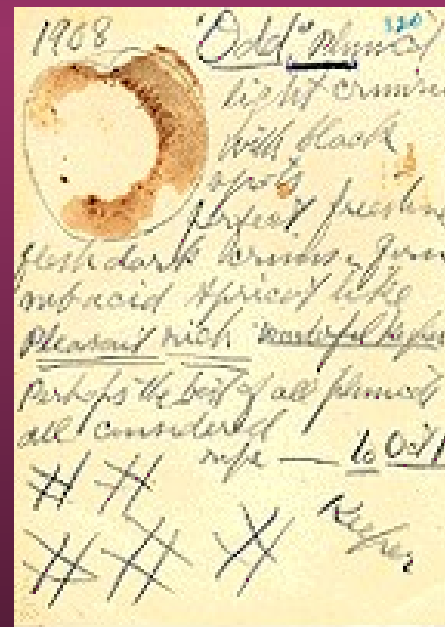 1908 "Odd" Plumcot 120
light crimson
with black
spots
perfect freestone
flesh dark crimson, firm
subacid apricot like
Pleasant rich
Perhaps the best of all plumcots
all considered
ripe — to Oct 1
Keeper